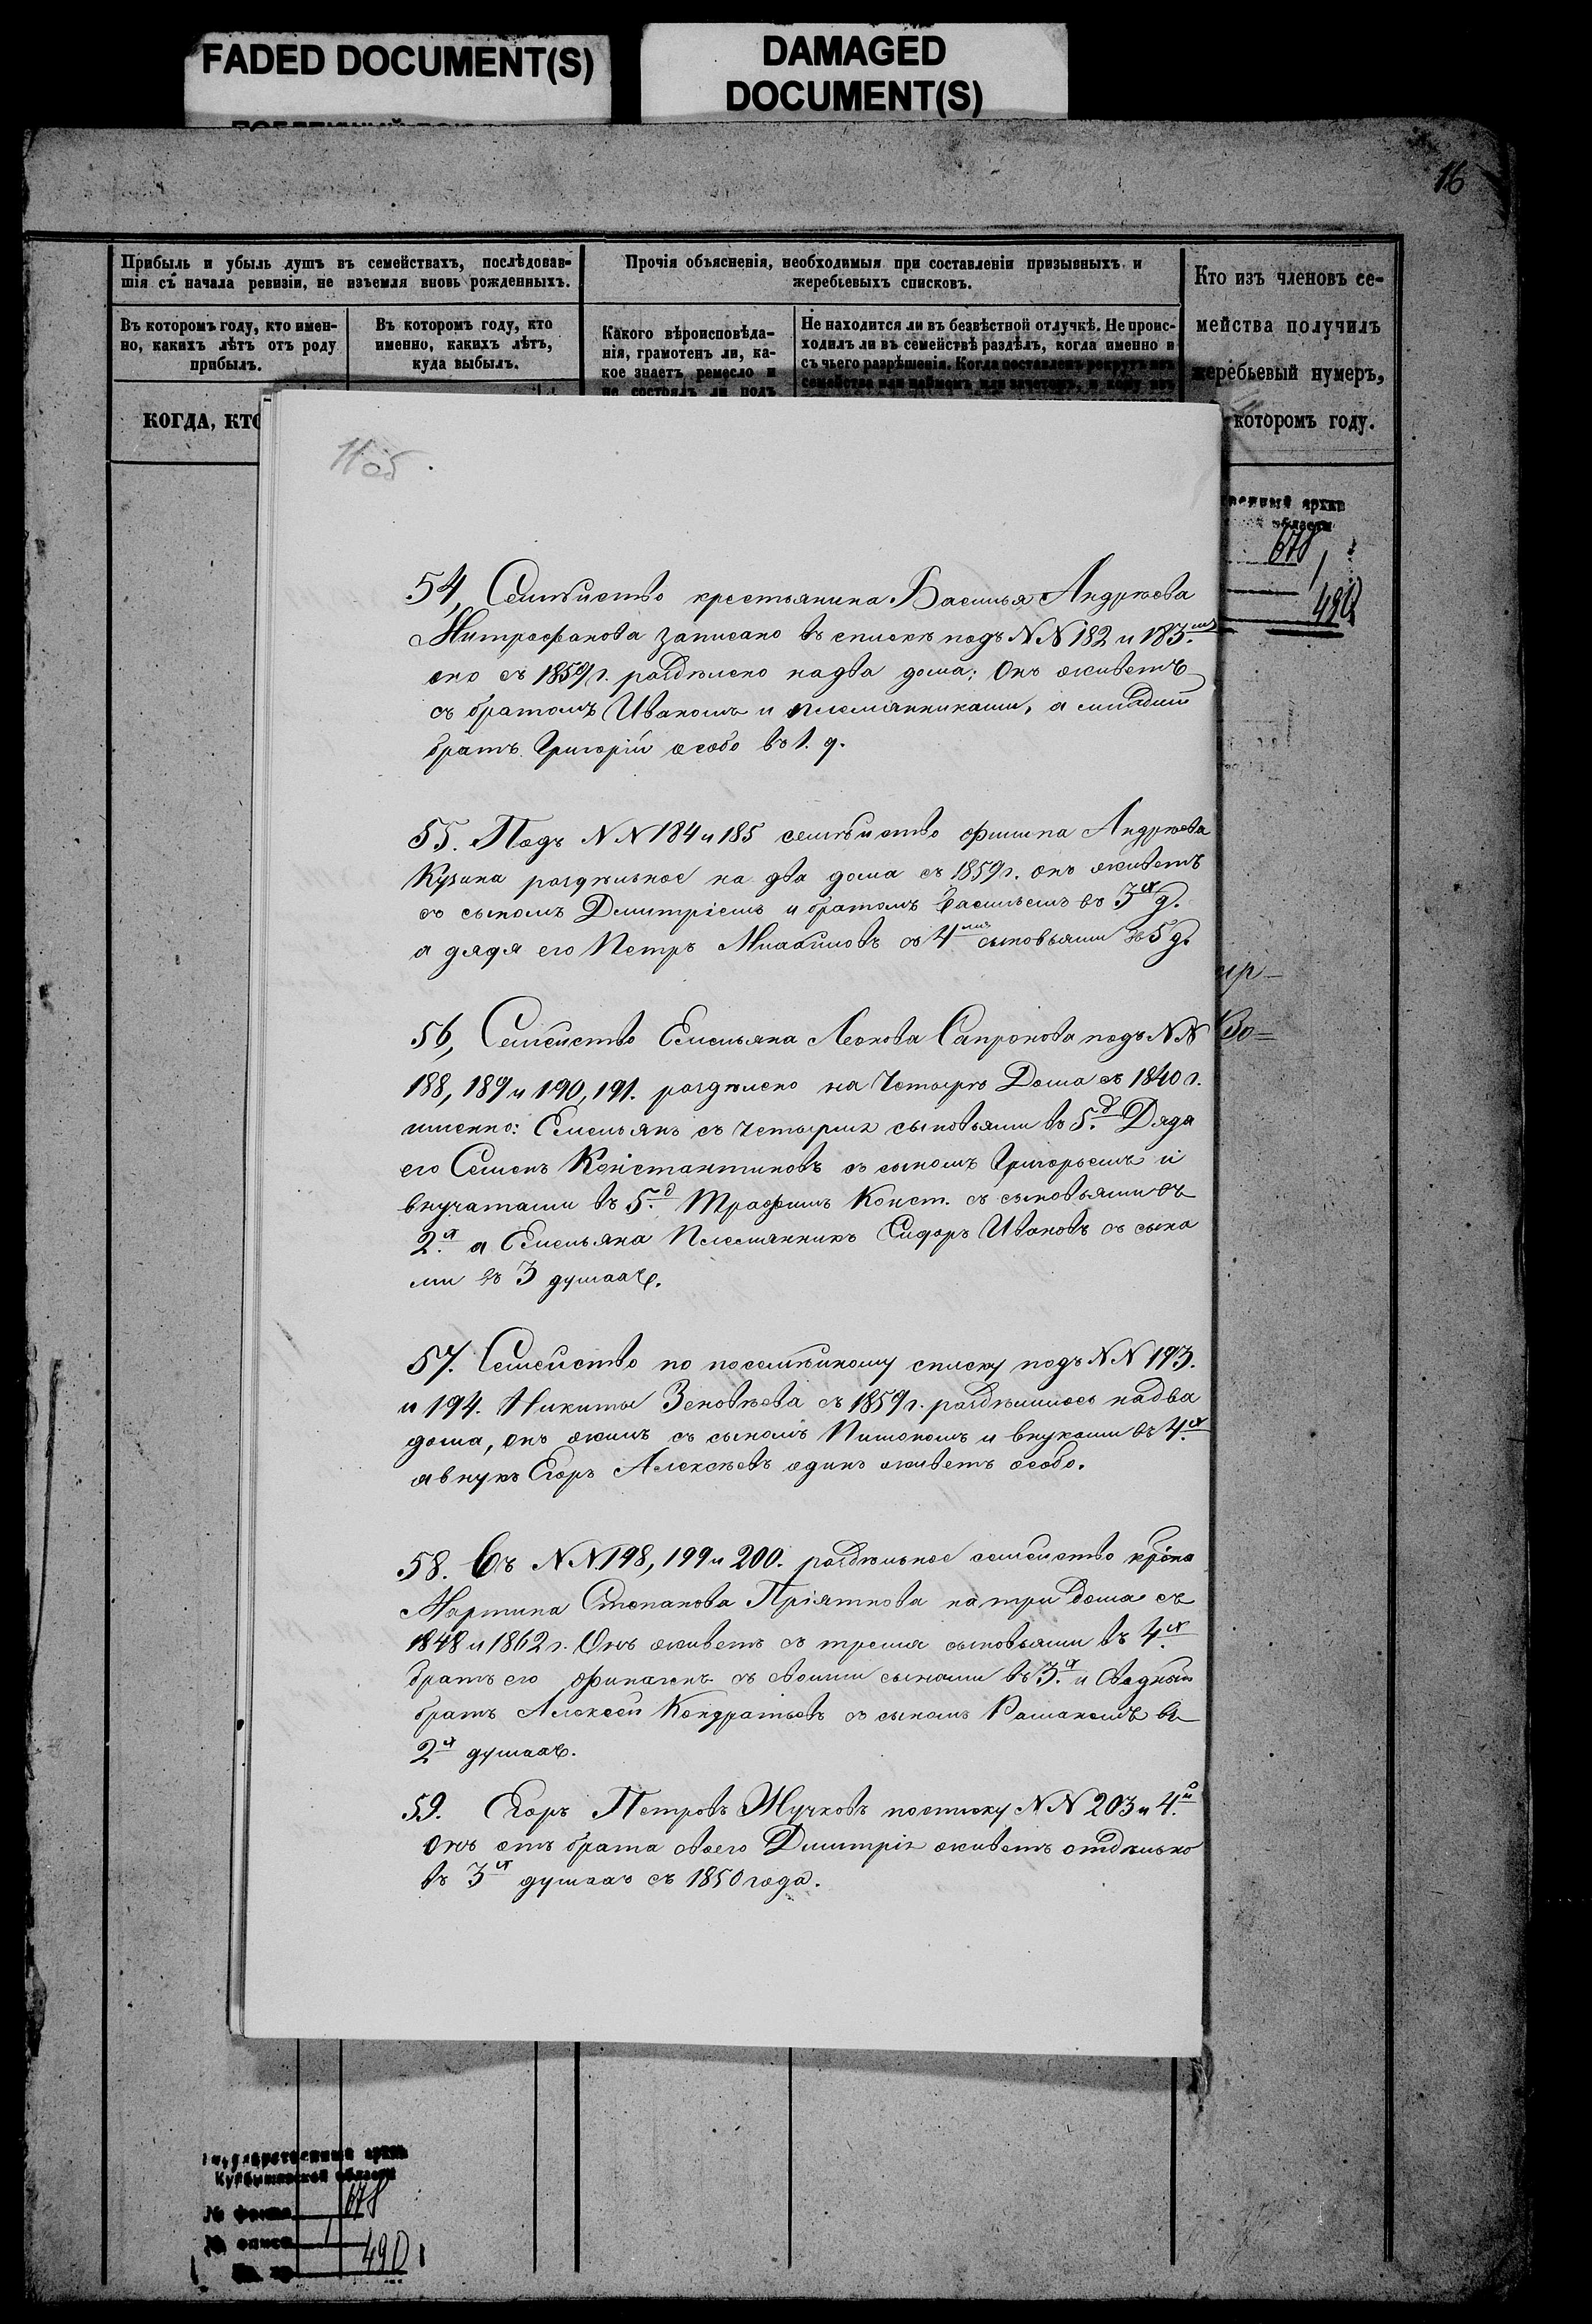 FADED DOCUMENT(S)
DAMAGED
DOCUMENT(S)
16
Прибыль и убыль душъ въ семействахъ, послѣдовав-
шія съ начала ревизіи, не изъемля вновь рожденныхъ.
Въ которомъ году, кто имен-
но, какихъ лѣтъ отъ роду
прибылъ.
Въ которомъ году, кто
именно, какихъ лѣтъ,
куда выбылъ.
КОГДА, КТО
Прочія объясненія, необходимыя при составленіи призывныхъ и
жеребьевыхъ списковъ.
Какого вѣроисповѣда-
нія, грамотенъ ли, ка-
кое знаетъ ремесло и
не состоялъ ли подъ
Не находится ли въ безвѣстной отлучкѣ. Не проис-
ходилъ ли въ семействѣ раздѣлъ, когда именно и
съ чьего разрѣшенія. Когда поставленъ рекрутъ изъ
семейства или наймомъ или зачетомъ, и кому изъ
Кто изъ членовъ се-
мейства получилъ
жеребьевый нумеръ,
котомъ году.
11 об.
54, Семѣйство крестьянина Василья Андрѣева
Митрофанова записано въ спискѣ подъ NN 182 и 183.
оно съ 1859 г. раздѣлено на два дома: Онъ живетъ
съ братомъ Иваномъ и племянниками, а младшій
братъ Григорій особо въ 1. д.
55. Подъ NN 184 и 185 семѣйство Филипа Андрѣева
Кузина раздѣльное на два дома съ 1859 г. онъ живетъ
съ сыномъ Дмитріемъ и братомъ Васильемъ въ 3х д.
а дядя его Петръ съ 4мя сыновьями въ 5 д.
56, Семейство Емельяна Леонова Сапронова подъ NN
188, 189 и 190, 191. раздѣлено на Четырѣ Дома съ 1840 г.
именно: Емельянъ съ четырмя сыновьями въ 5.д Дядя
его Семенъ Константиновъ съ сыномъ Григорьемъ и
внучатами въ 5.д Трафимъ Конст. съ сыновьями въ
2.х а Емельяна Племянникъ Сидоръ Ивановъ съ сына
ми въ 3 душахъ.
57. Семейство по посемѣйному списку подъ NN 193.
и 194. Никиты Зеновѣева съ 1859 г. раздѣлилось на два
дома, онъ жилъ съ сыномъ и внуками въ 4.х
а внукъ Егоръ Алексѣевъ одинъ живетъ особо.
58. Въ NN 198, 199 и 200. раздѣльное семейство крѣна
Мартина Степанова Пріяткова на три дома съ
1848 и 1862 г. Онъ живетъ съ тремя сыновьями въ 4.х
братъ его съ своими сынами въ 3.х и Сводный
братъ Алексѣй Кондратьевъ съ сыномъ Раманомъ въ
2х душахъ.
59. Егоръ Петровъ Жучковъ по списку NN 203 и 4.й
Онъ отъ брата своего Дмитрія живетъ отдѣльно
въ 3х душахъ съ 1850 года.
678
1
490
Государственный архив
Куйбышевской области
№ фонда 678
№ описи 1
490